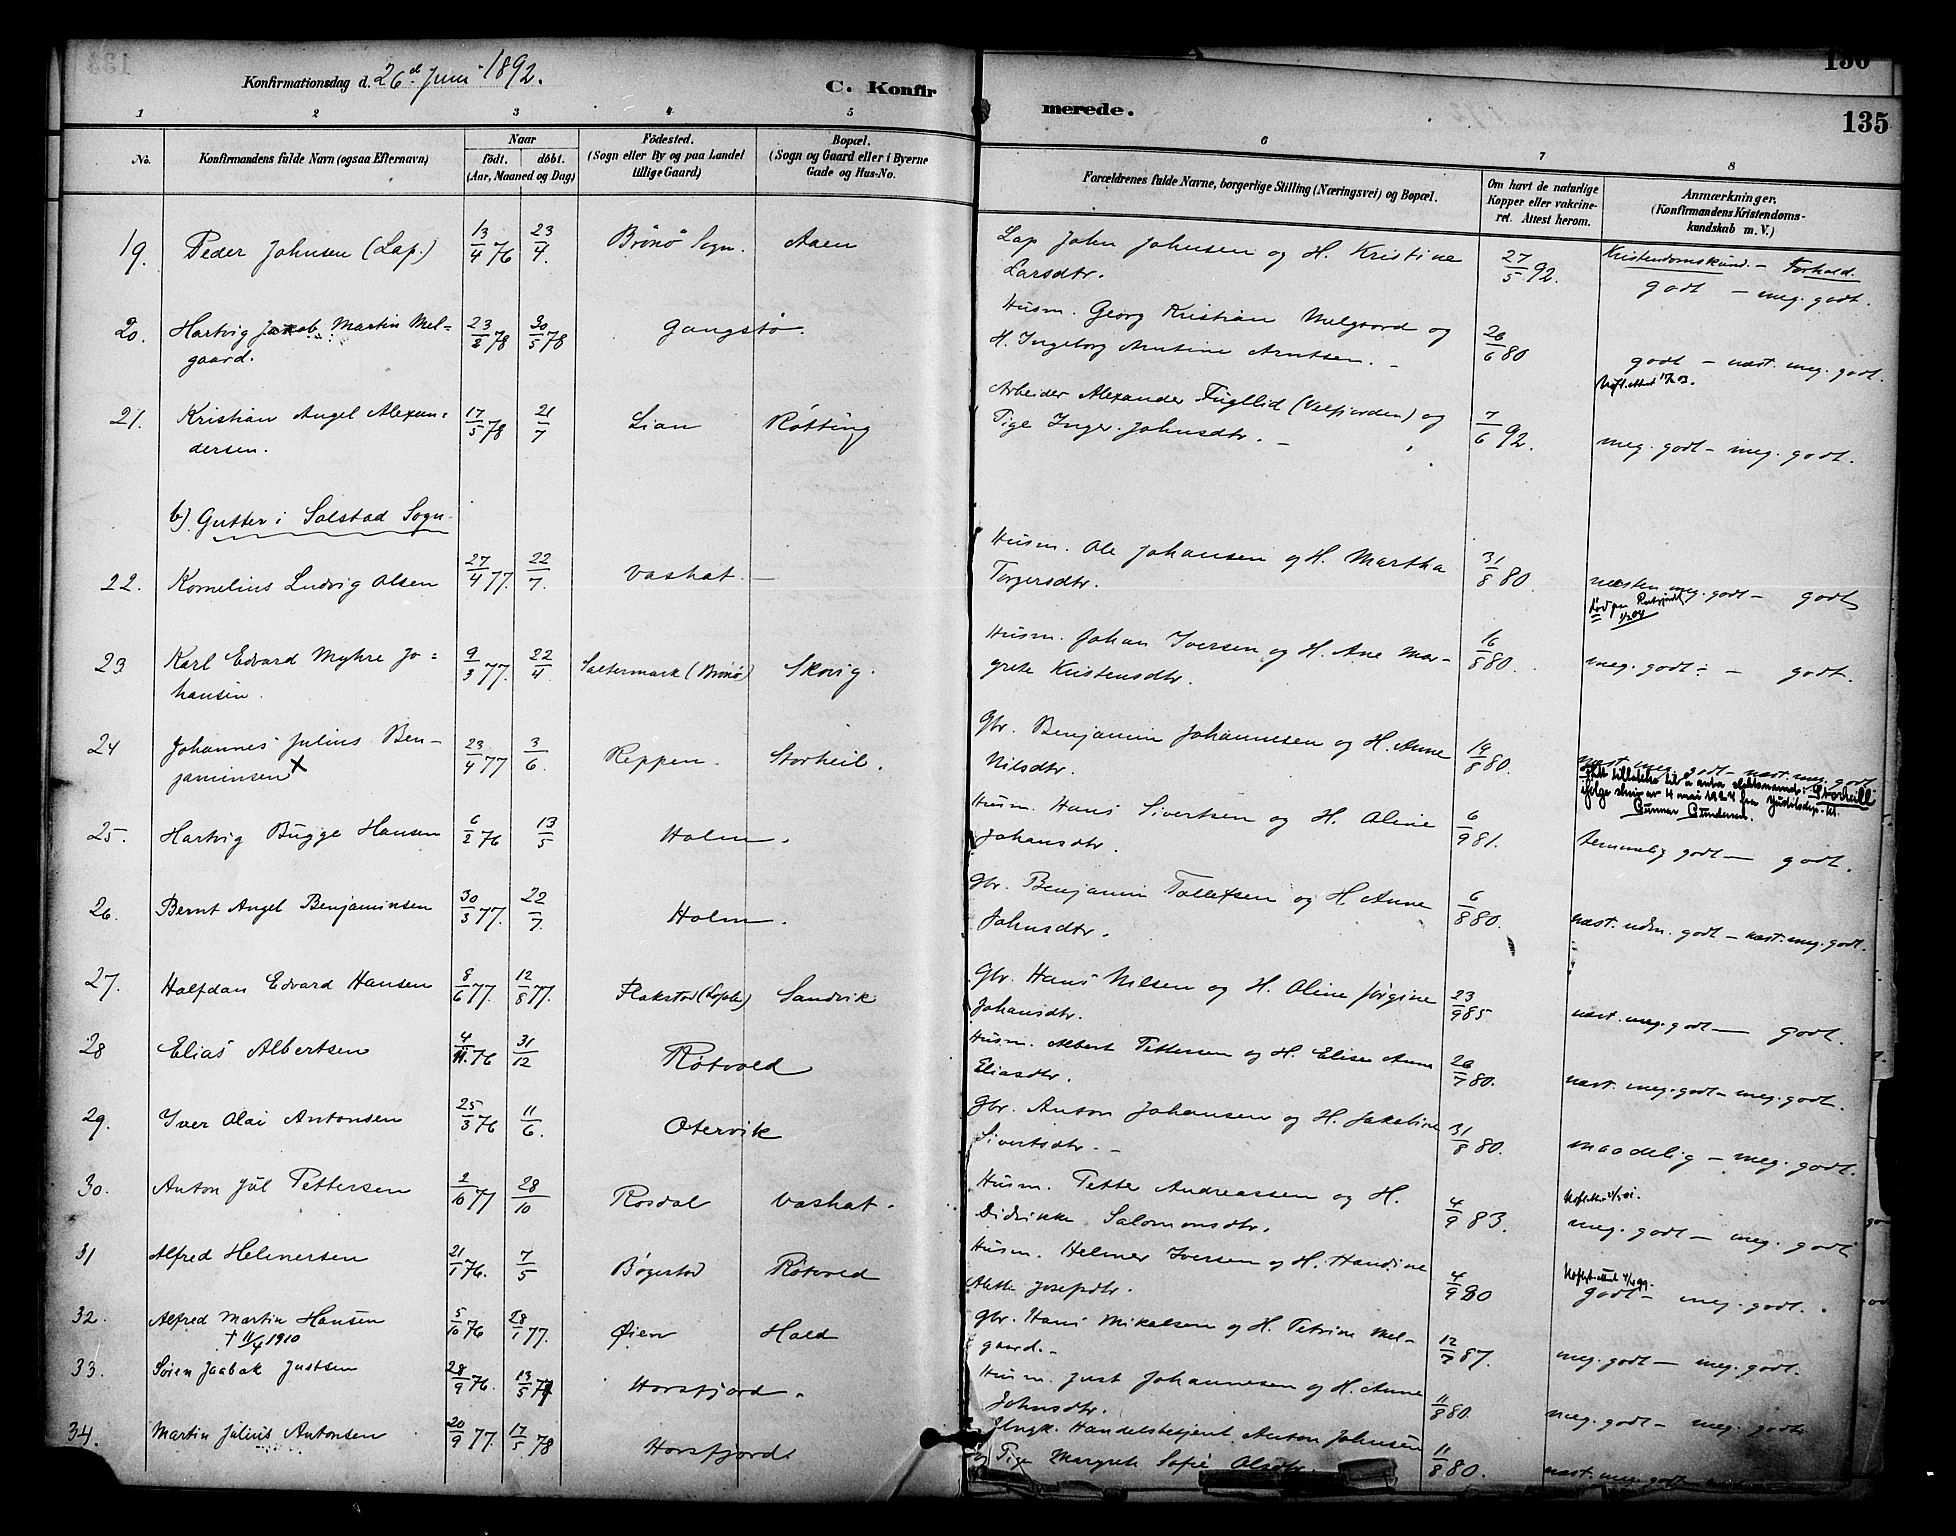 Konfirmationsdag d. 26d Juni 1892.
C. Konfirmerede.
135
1 2 3 4 5 6 7 8
No. Konfirmandens fulde Navn (ogsaa Efternavn) Naar födt. döbt. (Aar, Maaned og Dag) Födested. (Sogn eller By og paa Landet tillige Gaard) Bopæl. (Sogn og Gaard eller i Byerne Gade og Hus-No. Forældrenes fulde Navne, borgerlige Stilling (Næringsvei) og Bopæl. Om havt de naturlige Kopper eller vakcineret. Attest herom. Anmærkninger. (Konfirmandens Kristendomskundskab m. V.)
Kristendomskund. – Forhold.
19. Peder Johnsen (Lap.) 13/4 76 23/4. Brönö Sogn. Aaen Lap John Johnsen og H. Kristine Larsdtr. 27/5 92. godt – meg. godt.
20. Hartvig Jakob Martin Melgaard. 23/2 78 30/5 78 Gangstø. Husm. Georg Kristian Melgaard og H. Ingeborg Arntine Arntsen. – 26/6 80 godt – næst. meg. godt.
21. Kristian Angel Alexandersen. 17/5 78 21/7 Lian Røtting Arbeider Alexander Fugllid (Velfjorden) og Pige Inger Johnsdtr. – 7/6 92. meg. godt – meg. godt.
b) Gutter i Solstad Sogn
22. Kornelius Ludvig Olsen 27/4 77. 22/7. Vashat. – Husm. Ole Johansen og H. Martha Torgersdtr. 31/8 80 næsten meg. godt – godt
23 Karl Edvard Myhre Johansen. 9/3 77. 22/4 Saltermark (Brönö) Skovig. Husm. Johan Iversen og H. Ane Margrete Kristensdtr. 16/8 80. meg. godt – godt.
24 Johannes Julius Benjaminsen X 23/4 77 3/6. Reppen. Storheil. Gbr. Benjamin Johannesen og H. Anne Nilsdtr. 19/8 80. næst. meg. godt – næst. meg. godt
Fått tillatelse til å anta slektsnavnet: Storheill ifølge skriv av 4 mai 1924 fra Justisdep. tet. Gunnar Gundersen.
25. Hartvig Bugge Hansen 6/2 76 13/5 Holm. Husm. Hans Sivertsen og H. Oline Johansdtr. 6/9 81. temmelig godt – godt.
26. Bernt Angel Benjaminsen 30/3 77. 22/7. Holm. Gbr. Benjamin Tollefsen og H. Anne Johnsdtr. 6/8 80. næst. udm. godt – næst. meg. godt.
27. Halfdan Edvard Hansen 8/6 77. 12/8 77. Flakstad (Lofoten) Sandvik Gbr. Hans Nilsen og H. Oline Jørgine Johansdtr. 23/9 85 næst. meg. godt – godt.
28 Elias Albertsen 4/11. 76 31/12 Røtvold Husm. Albert Pettersen og H. Elise Anne Eliasdtr. 26/7 80. næst. meg. godt – meg. godt.
29. Iver Olai Antonsen 25/3 76 11/6. Otervik Gbr. Anton Johansen og H. Jakobine Sivertsdtr. – 31/8 80. maadelig – meg. godt.
30. Anton Jul Pettersen 2/10 77 28/10 Rosdal Vashat. Husm. Petter Andreassen og H. Didrikke Salomonsdtr. 4/9 83. meg. godt – meg. godt
31 Alfred Helmersen 21/1 76. 7/5 Bøgestad Røtvold Husm. Helmer Iversen og H. Handine Aleth. Josefsdtr. 4/9 80 godt – meg. godt.
32. Alfred Martin Hansen 5/10 76 28/1 77. Øien Hald Gbr. Hans Mikalsen og H. Petrine Melgaard. – 12/7 87. meg. godt – meg. godt.
† 11/4 1910
33. Søren Jaabak Justsen 28/9 76. 13/5 77 Horsfjord. Husm. Just Johannesen og H. Anne Johnsdtr. 11/8 80. meg. godt – meg. godt
34. Martin Julius Antonsen 20/9 77. 17/5 78 Horsfjord Ungk. Handelsbetjent Anton Johnsen og Pige Margrete Sofie Olsdtr. 11/8 80. næst. meg. godt